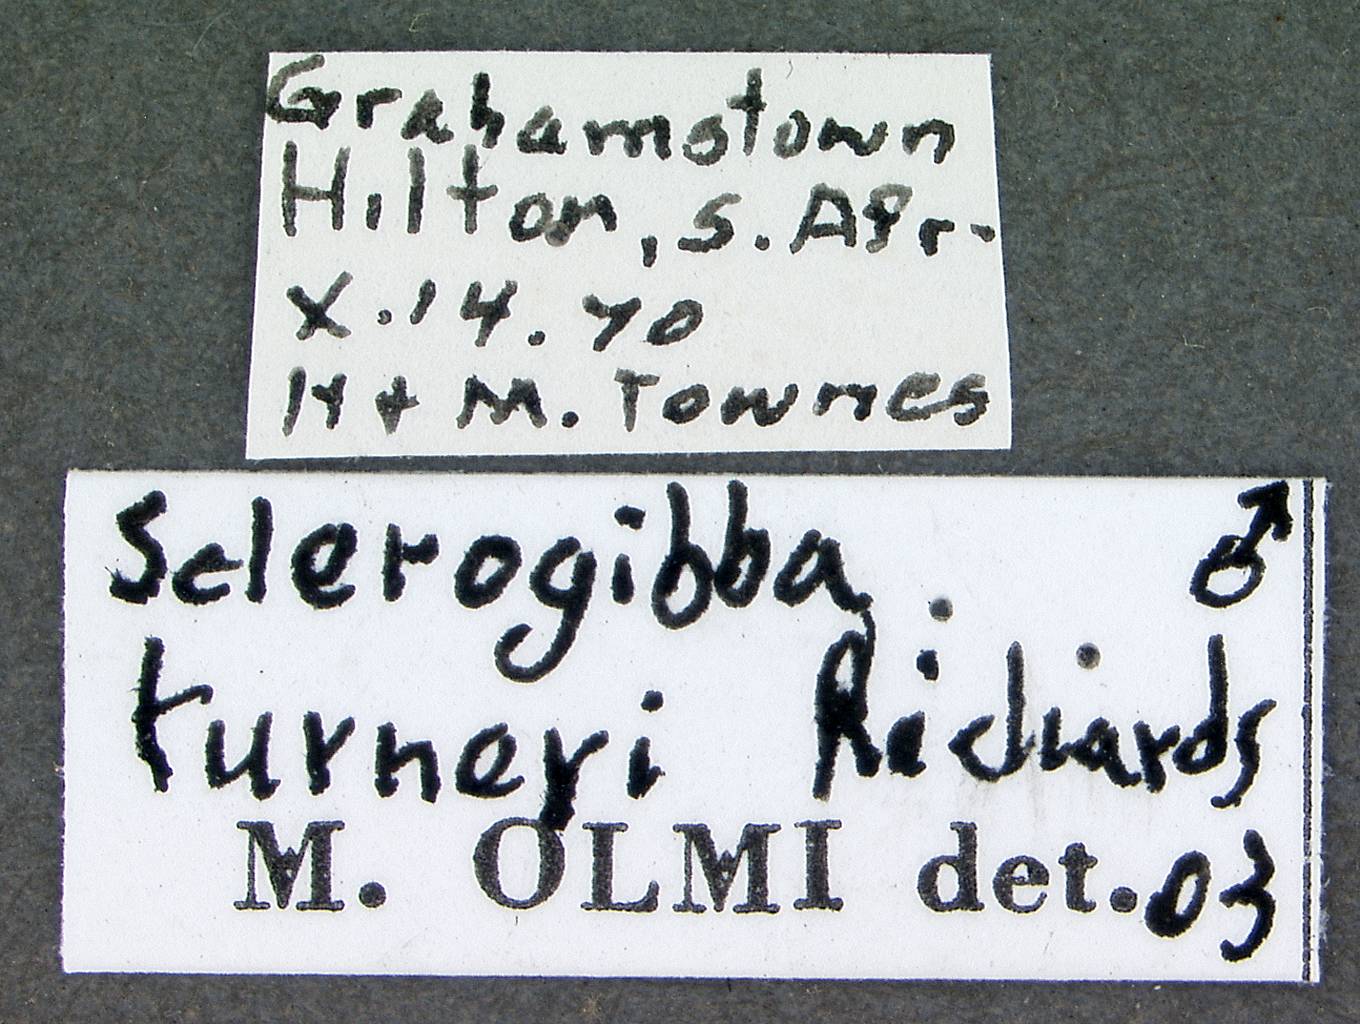 Grahamstown
Hilton, S. Afr.
X.14.70
H + M. Townes
Sclerogibba ♂
turneri Richards
M. OLMI det. 03